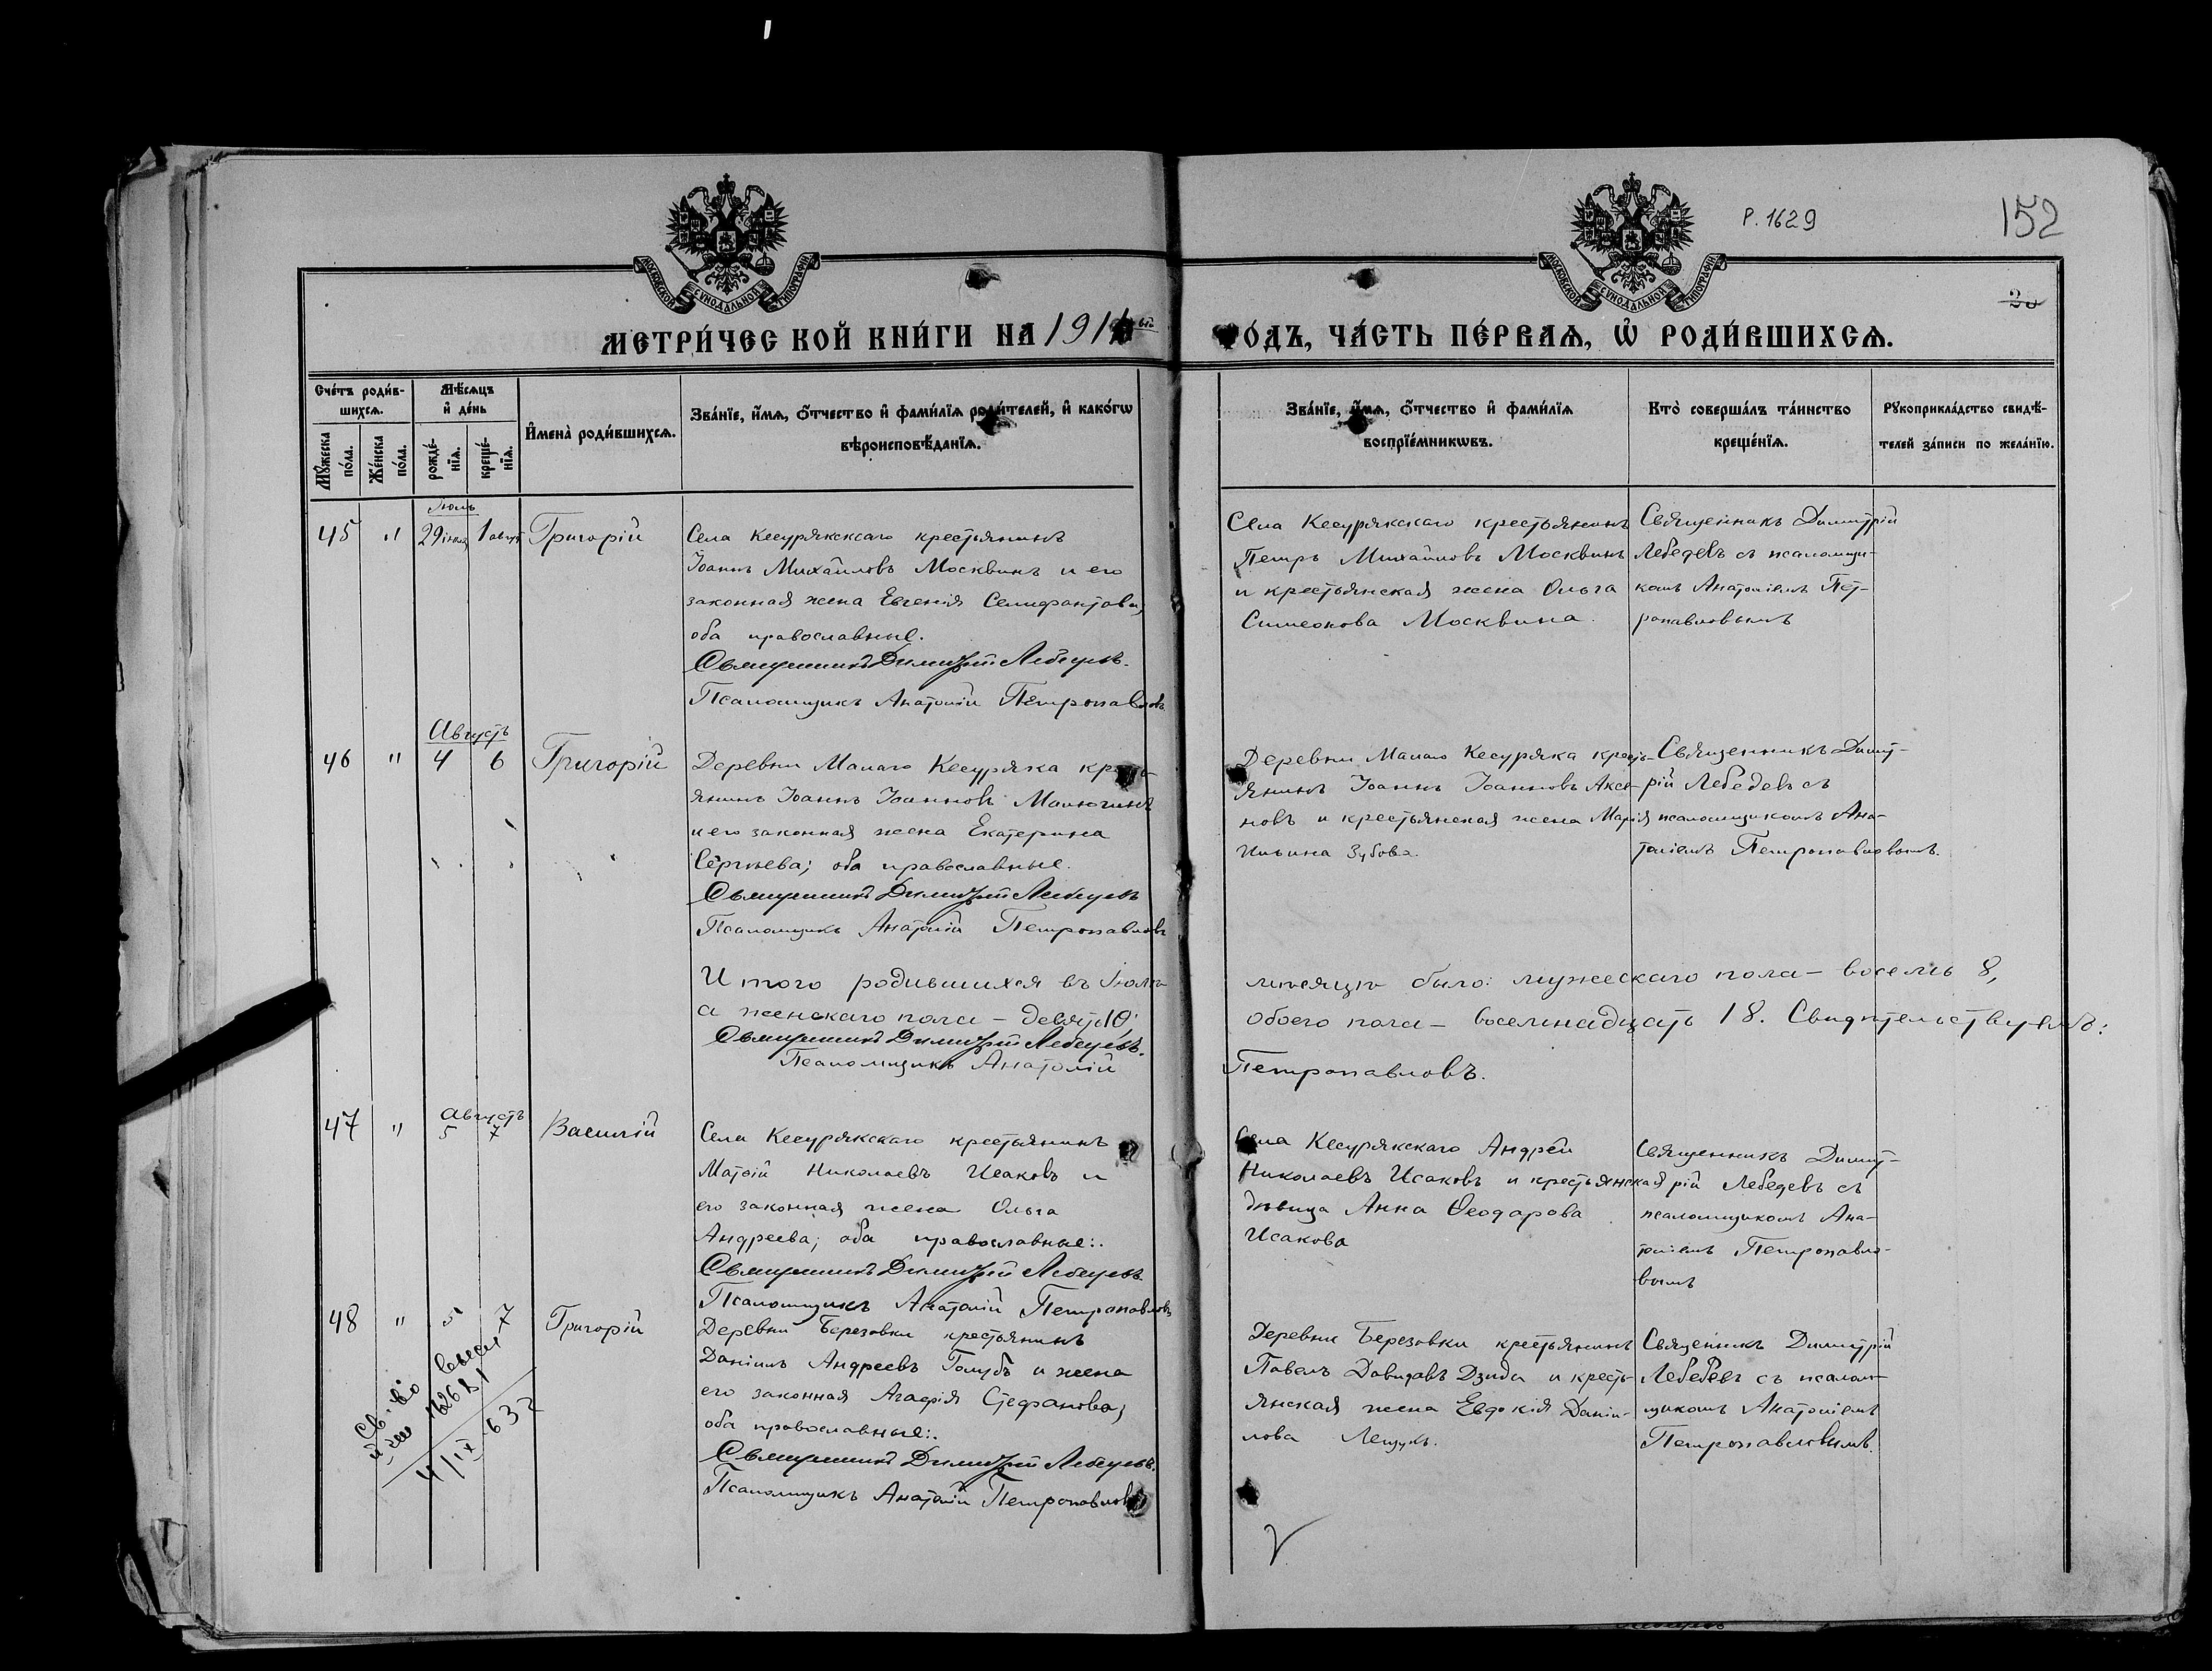 Р. 1629
152
20
МОСКОВСКОЙ СѴНОДАЛЬНОЙ ТИПОГРАФІИ
МОСКОВСКОЙ СѴНОДАЛЬНОЙ ТИПОГРАФІИ
МЕТРИ́ЧЕСКОЙ КНИ́ГИ НА 191 ый
ГО́ДЪ, ЧА́СТЬ ПЕ́РВАѦ, Ѽ РОДИ́ВШИХСѦ.
Сче́тъ роди́в-
шихсѧ.
Мꙋ́жеска по́ла.
Же́нска по́ла.
Мѣ́сѧцъ
и҆ де́нь
рожде́-
нїѧ.
креще́-
нїѧ.
И҆мена̀ роди́вшихсѧ.
Зва́нїе, и҆́мѧ, ѻ҆́тчество и҆ фами́лїѧ роди́телей, и҆ како́гѡ
вѣроисповѣ́данїѧ.
Зва́нїе, и҆́мѧ, ѻ҆́тчество и҆ фами́лїѧ
воспрїе́мникѡвъ.
Кто̀ соверша́лъ та́инство
креще́нїѧ.
Рꙋкоприкла́дство свидѣ́-
телей за́писи по жела́нїю.
Іюль
45 " 29 іюля 1 август Григорій
Села Кесурякскаго крестьянинъ
Іоаннъ Михайловъ Москвинъ и его
законная жена Евгенія Селифантова;
оба православные.
Священникъ Димитрій Лебедевъ.
Псаломщикъ Анатолій Петропавловъ
Села Кесурякскаго крестьянинъ
Петръ Михайловъ Москвинъ
и крестьянская жена Ольга
Симеонова Москвина.
Священникъ Димитрій
Лебедевъ съ псаломщи-
комъ Анатоліемъ Пет-
ропавловымъ
Августъ
46 " 4 6 Григорій
Деревни Малаго Кесуряка кресть-
янинъ Іоаннъ Іоанновъ Малюгинъ
и его законная жена Екатерина
Сергѣева; оба православные.
Священникъ Димитрій Лебедевъ
Псаломщикъ Анатолій Петропавловъ
Деревни Малаго Кесуряка кресть-
янинъ Іоаннъ Іоанновъ Аксе-
новъ и крестьянская жена Марія
Ильина Зубова.
Священникъ Димит-
рій Лебедевъ съ
псаломщикомъ Ана-
толіемъ Петропавловымъ.
Итого родившихся въ Іюлѣ
мѣсяцѣ было: мужескаго пола – восемь 8,
а женскаго пола – десять 10
обоего пола – восемнадцать 18. Свидѣтельствуемъ:
Священникъ Димитрій Лебедевъ.
Псаломщикъ Анатолій
Петропавловъ.
Августъ
47 " 5 7 Василій
Села Кесурякскаго крестьянинъ
Матѳій Николаевъ Исаковъ и
его законная жена Ольга
Андреева; оба православные:.
Священникъ Димитрій Лебедевъ
Псаломщикъ Анатолій Петропавловъ
Села Кесурякскаго Андрей
Николаевъ Исаковъ и крестьянская
дѣвица Анна Ѳеодарова
Исакова
Священникъ Димит-
рій Лебедевъ съ
псаломщикомъ Ана-
толіемъ Петропавло-
вымъ
48 " 5 7 Григорій
Деревни Березовки крестьянинъ
Даніилъ Андреевъ Голубъ и жена
его законная Агафія Стефанова;
оба православные:.
Священникъ Димитрій Лебедевъ.
Псаломщикъ Анатолій Петропавловъ
Деревни Березовки крестьянинъ
Павелъ Давидовъ Дзида и кресть-
янская жена Евдокія Даніи-
лова Лещукъ.
Священникъ Димитрій
Лебедевъ съ псалом-
щикомъ Анатоліемъ
Петропавловымъ.
Св-во
4/IX 632